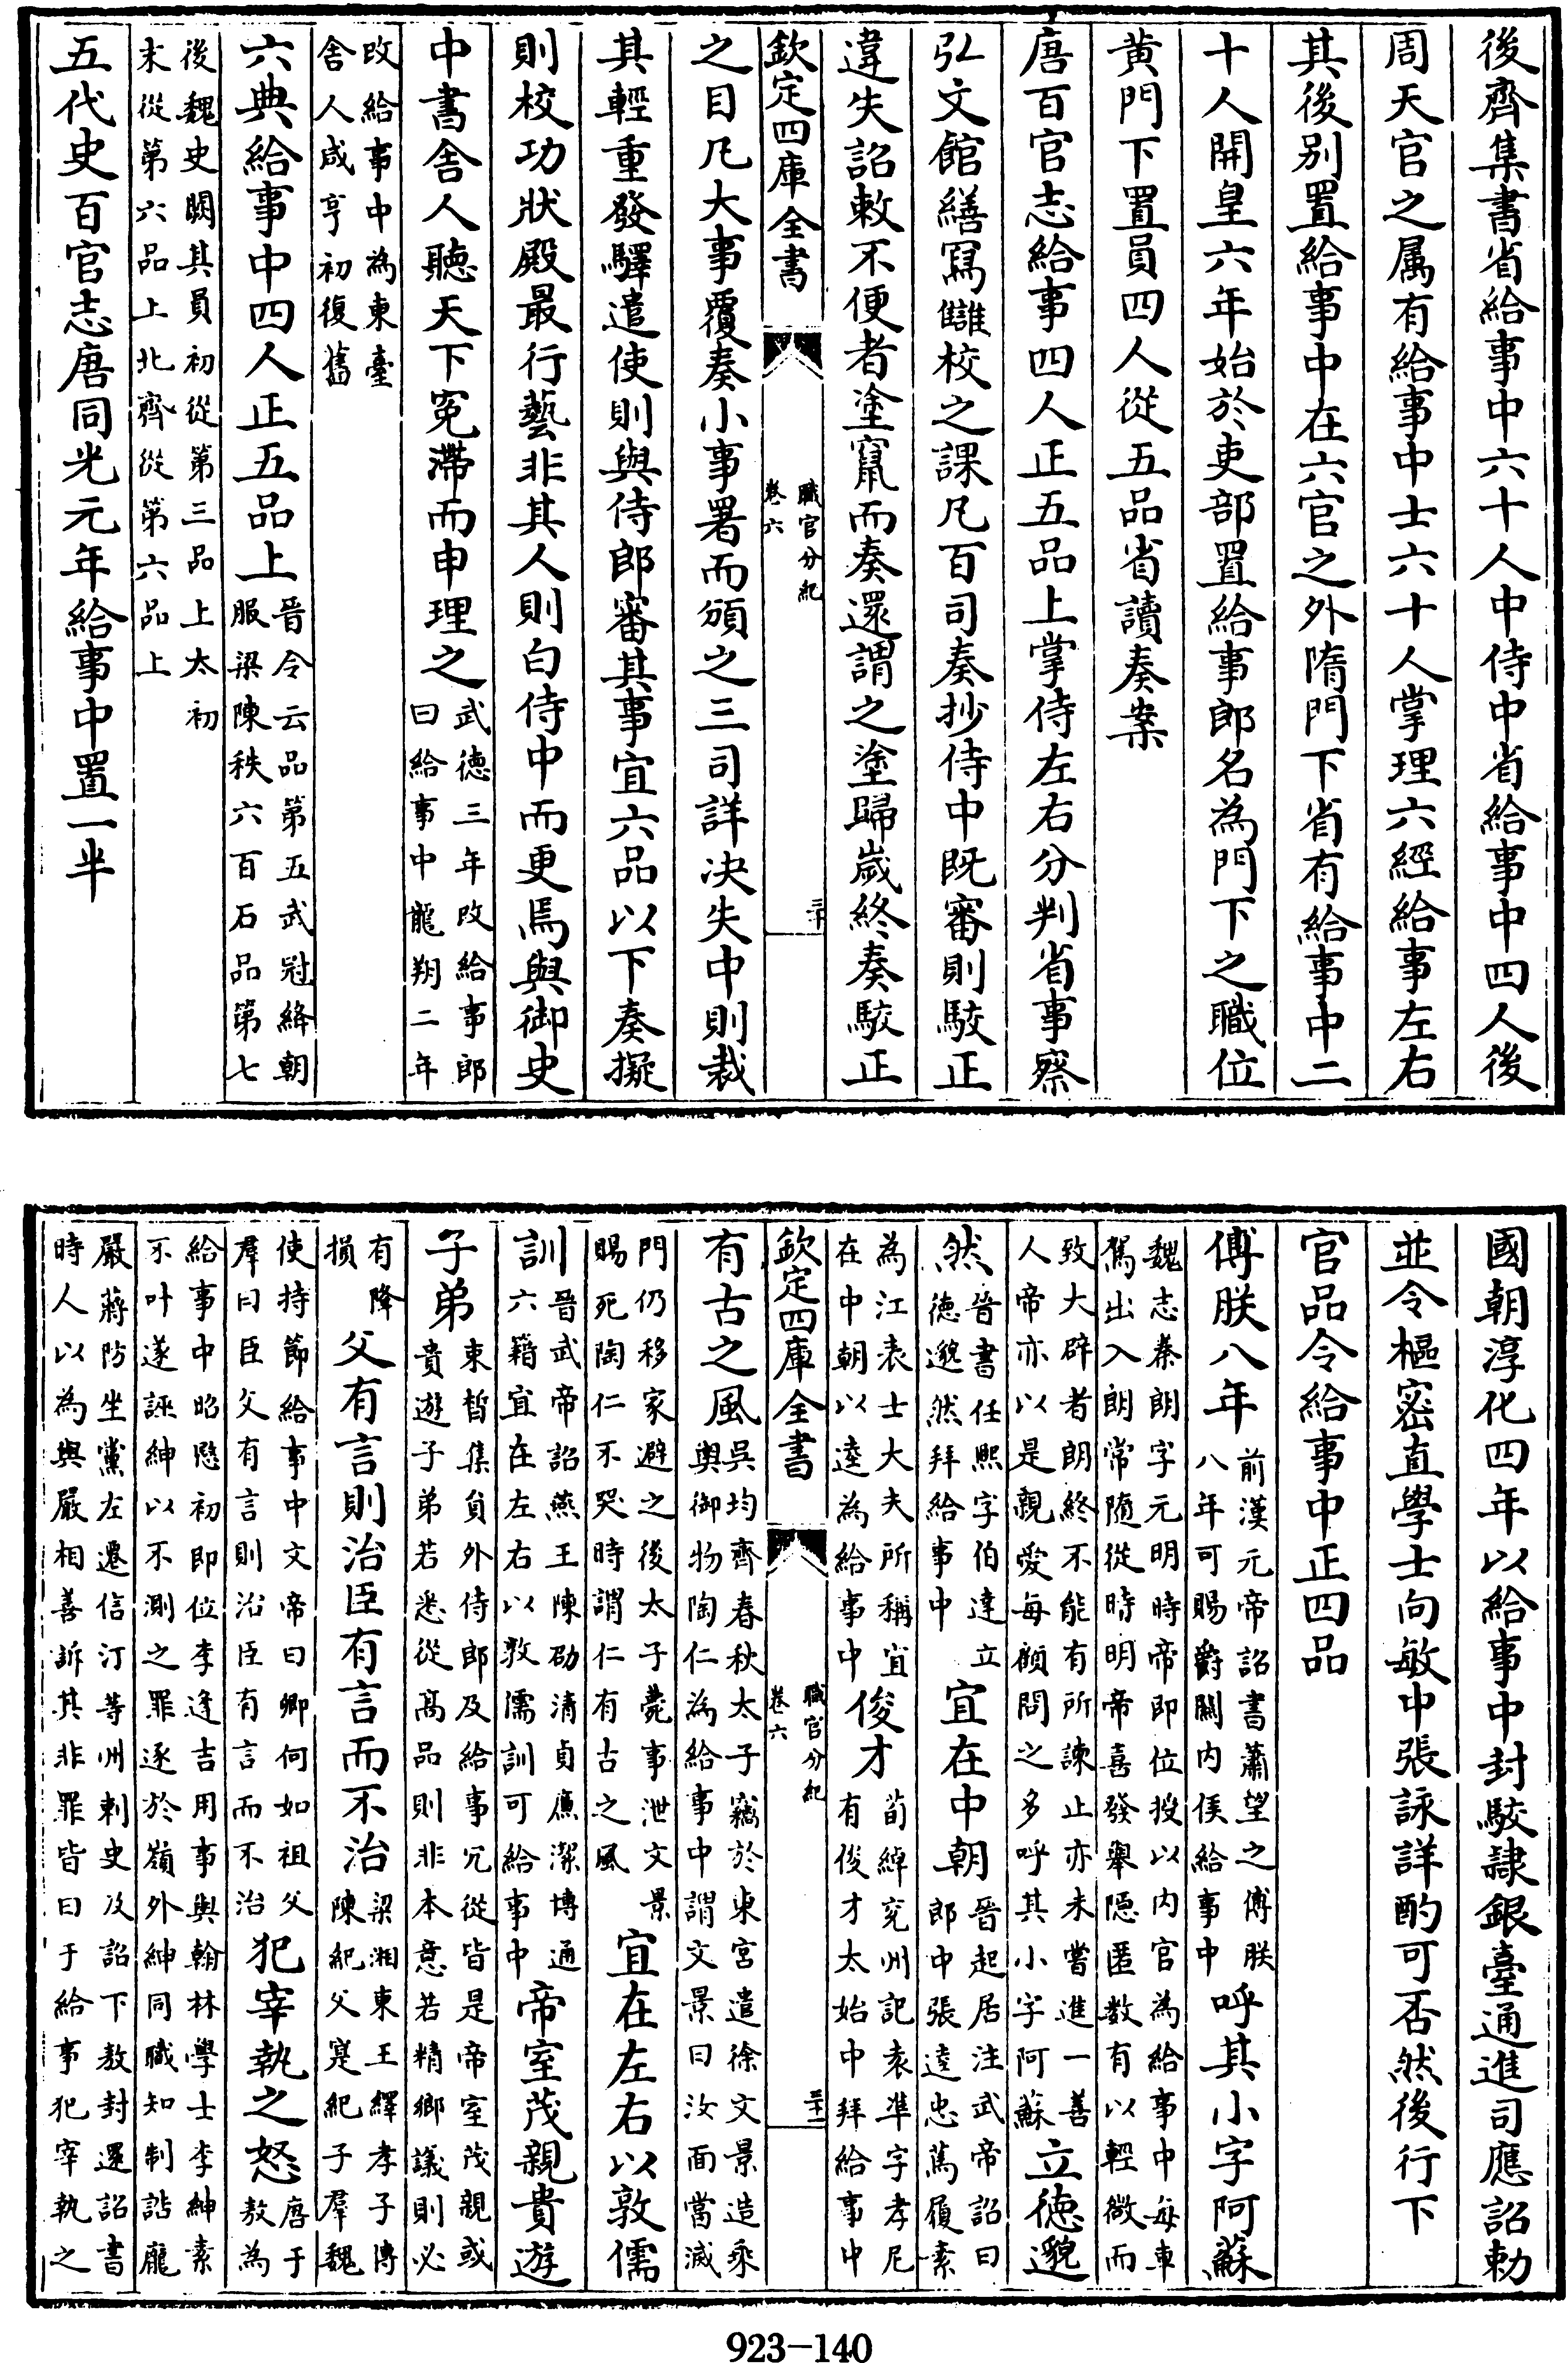 後齊集書省給事中六十人中侍中省給事中四人後
周天官之屬有給事中士六十人掌理六經給事左右
其後别置給事中在六官之外隋門下省有給事中二
十人開皇六年始於吏部置給事郎名為門下之職位
黄門下置員四人從五品省讀奏案
唐百官志給事四人正五品上掌侍左右分判省事察
弘文館繕寫讎校之課凡百司奏抄侍中既審則駮正
違失詔敕不便者塗竄而奏還謂之塗歸歲終奏駮正
欽定四庫全書
職官分紀
卷六
三十
之目凡大事覆奏小事署而頒之三司詳决失中則裁
其輕重發驛遣使則與侍郎審其事宜六品以下奏擬
則校功狀殿最行藝非其人則白侍中而更焉與御史
中書舍人聽天下寃滯而申理之
武德三年改給事郎
曰給事中龍朔二年
改給事中為東臺
舍人咸亨初復舊
六典給事中四人正五品上
晉令云品第五武冠絳朝
服梁陳秩六百石品第七
後魏史闕其員初從第三品上太初
末從第六品上北齊從第六品上
五代史百官志唐同光元年給事中置一半
國朝淳化四年以給事中封駮隷銀臺通進司應詔勅
並令樞密直學士向敏中張詠詳酌可否然後行下
官品令給事中正四品
傅朕八年
前漢元帝詔書蕭望之傅朕
八年可賜爵關内侯給事中
呼其小字阿蘇
魏志秦朗字元明時帝即位授以内官為給事中每車
駕出入朗常隨從時明帝喜發舉隠匿数有以輕微而
致大辟者朗終不能有所諫止亦未嘗進一善
人帝亦以是親愛每顧問之多呼其小字阿蘇
立德邈
然
晉書任熙字伯逹立
德邈然拜給事中
宜在中朝
晉起居注武帝詔曰
郎中張逵忠篤履素
為江表士大夫所稱宜
在中朝以逵為給事中
俊才
荀綽兖州記袁準字孝尼
有俊才太始中拜給事中
欽定四庫全書
職官分紀
卷六
三十一
有古之風
吳均齊春秋太子竊於東宫遣徐文景造乘
輿御物陶仁為給事中謂文景曰汝面當滅
門仍移家避之後太子薨事泄文景
賜死陶仁不哭時謂仁有古之風
宜在左右以敦儒
訓
晉武帝詔燕王陳劭清貞㢘潔博通
六籍宜在左右以敦儒訓可給事中
帝室茂親貴遊
子弟
束晳集負外侍郎及給事冗從皆是帝室茂親或
貴遊子弟若悉從髙品則非本意若精鄉議則必
有降
損
父有言則治臣有言而不治
梁湘東王繹孝子傳
陳紀父寔紀子羣魏
使持節給事中文帝曰卿何如祖父
羣曰臣父有言則治臣有言而不治
犯宰執之怒
唐于
敖為
給事中昭愍初即位李逢吉用事與翰林學士李紳素
不叶遂誣紳以不測之罪逐於嶺外紳同職知制詰龎
嚴蔣防坐黨左遷信汀等州刺史及詔下敖封還詔書
時人以為與嚴相善訴其非罪皆曰于給事犯宰執之
923-140